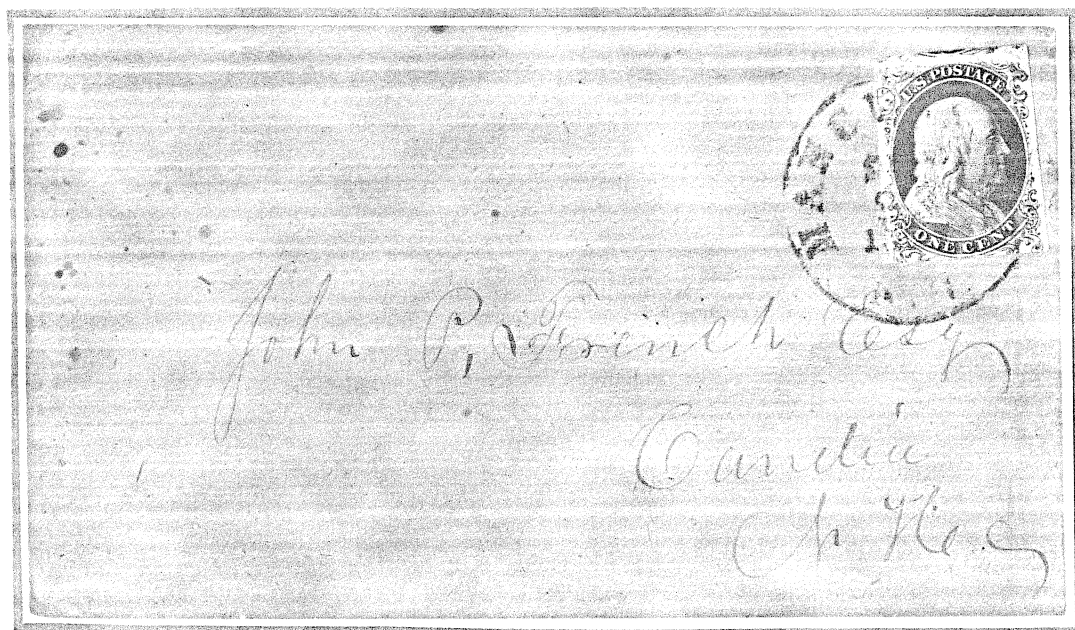 U.S. POSTAGE
ONE CENT
John P. French Esq
Candia
N. H.